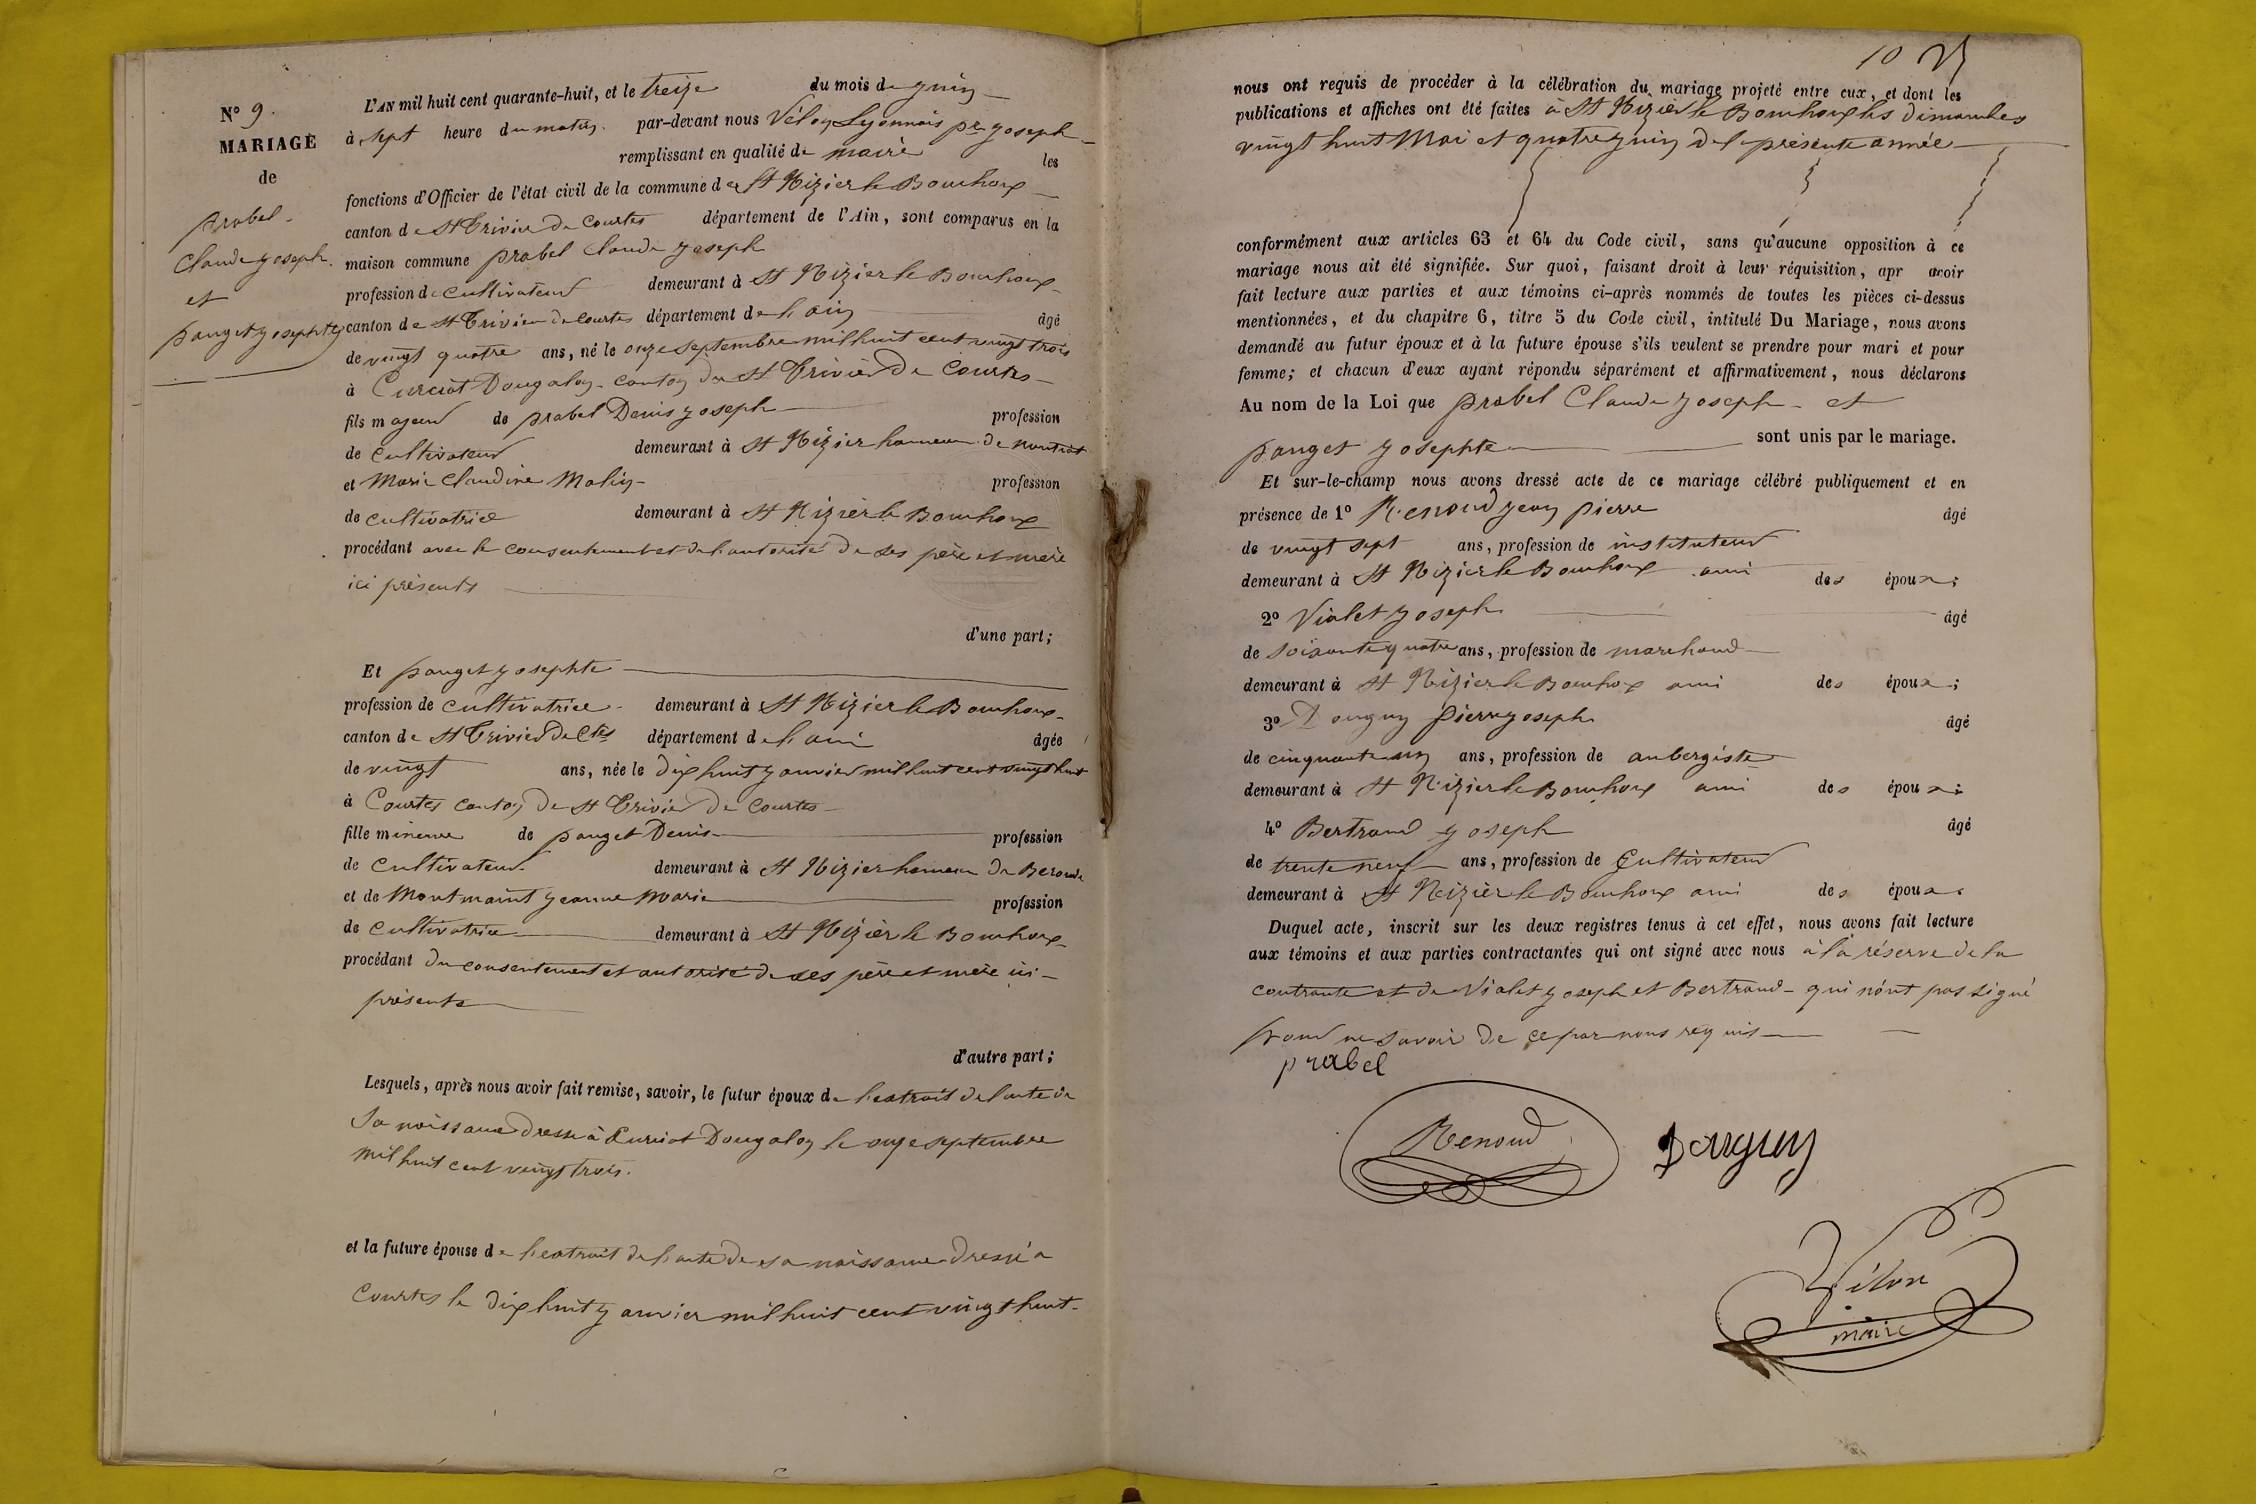 N° 9.
MARIAGE
de
prabel
Claude joseph.
et
panget josephte
L'AN mil huit cent quarante-huit, et le treize du mois de juin
à sept heure du matin. par-devant nous Vélon Lyonnais pre joseph
remplissant en qualité de maire les
fonctions d'Officier de l'état civil de la commune de St Nizier le Bouchoux
canton de St Trivier de Courtes département de l'Ain, sont comparus en la
maison commune prabel Claude joseph
profession de cultivateur demeurant à St Nizier le Bouchoux
canton de St Trivier de Courtes département de l'ain âgé
de vingt quatre ans, né le onze septembre mil huit cent vingt trois
à Curciat Dongalon canton de St Trivier De Courtes
fils majeur de prabel Denis joseph profession
de Cultivateur demeurant à St Nizier hameau de montrat
et Marie Claudine Malin profession
de cultivatrice demeurant à St Nizier le Bouchoux
procédant avec le consentement et de l'autorité de ses père et mère
ici présents
d'une part;
Et panget josephte
profession de cultivatrice demeurant à St Nizier le Bouchoux
canton de St Trivier de Ctes département de l'ain âgée
de vingt ans, née le dix huit janvier mil huit cent vingt huit
à Courtes canton De St Trivier De Courtes
fille mineure de panget Denis profession
de cultivateur demeurant à St Nizier hameau De
et de Montmaint jeanne Marie profession
de cultivatrice demeurant à St Nizier le Bouchoux
procédant du consentement et autorité de ses père et mère ici
présents
d'autre part;
Lesquels, après nous avoir fait remise, savoir, le futur époux de l'extrait de l'acte de
sa naissance dressé à Curciat Dongalon le onze septembre
mil huit cent vingt trois.
et la future épouse de l'extrait de l'acte de sa naissance dressé à
Courtes le dix huit janvier mil huit cent vingt huit.
10
nous ont requis de procéder à la célébration du mariage projeté entre eux, et dont les
publications et affiches ont été faites à St Nizier le Bouchoux les dimanches
vingt huit Mai et quatre juin de la présente année
conformément aux articles 63 et 64 du Code civil, sans qu'aucune opposition à ce
mariage nous ait été signifiée. Sur quoi, faisant droit à leur réquisition, apr avoir
fait lecture aux parties et aux témoins ci-après nommés de toutes les pièces ci-dessus
mentionnées, et du chapitre 6, titre 5 du Code civil, intitulé Du Mariage, nous avons
demandé au futur époux et à la future épouse s'ils veulent se prendre pour mari et pour
femme; et chacun d'eux ayant répondu séparément et affirmativement, nous déclarons
Au nom de la Loi que prabel Claude joseph et
panget josephte sont unis par le mariage.
Et sur-le-champ nous avons dressé acte de ce mariage célébré publiquement et en
présence de 1° Renoud jean pierre âgé
de vingt sept ans, profession de instituteur
demeurant à St Nizier le Bouchoux ami des époux;
2° Violet joseph âgé
de soixante quatre ans, profession de marchand
demeurant à St Nizier le Bouchoux ami des époux;
3° Donguy pierre joseph âgé
de cinquante un ans, profession de aubergiste
demeurant à St Nizier le Bouchoux ami des époux;
4° Bertrand joseph âgé
de trente neuf ans, profession de Cultivateur
demeurant à St Nizier le Bouchoux ami des époux.
Duquel acte, inscrit sur les deux registres tenus à cet effet, nous avons fait lecture
aux témoins et aux parties contractantes qui ont signé avec nous à la réserve de la
contrante et de Violet joseph et Bertrand qui n'ont pas signé
pour ne savoir de ce par nous requis
prabel
Renoud
Donguy
Vélon
maire